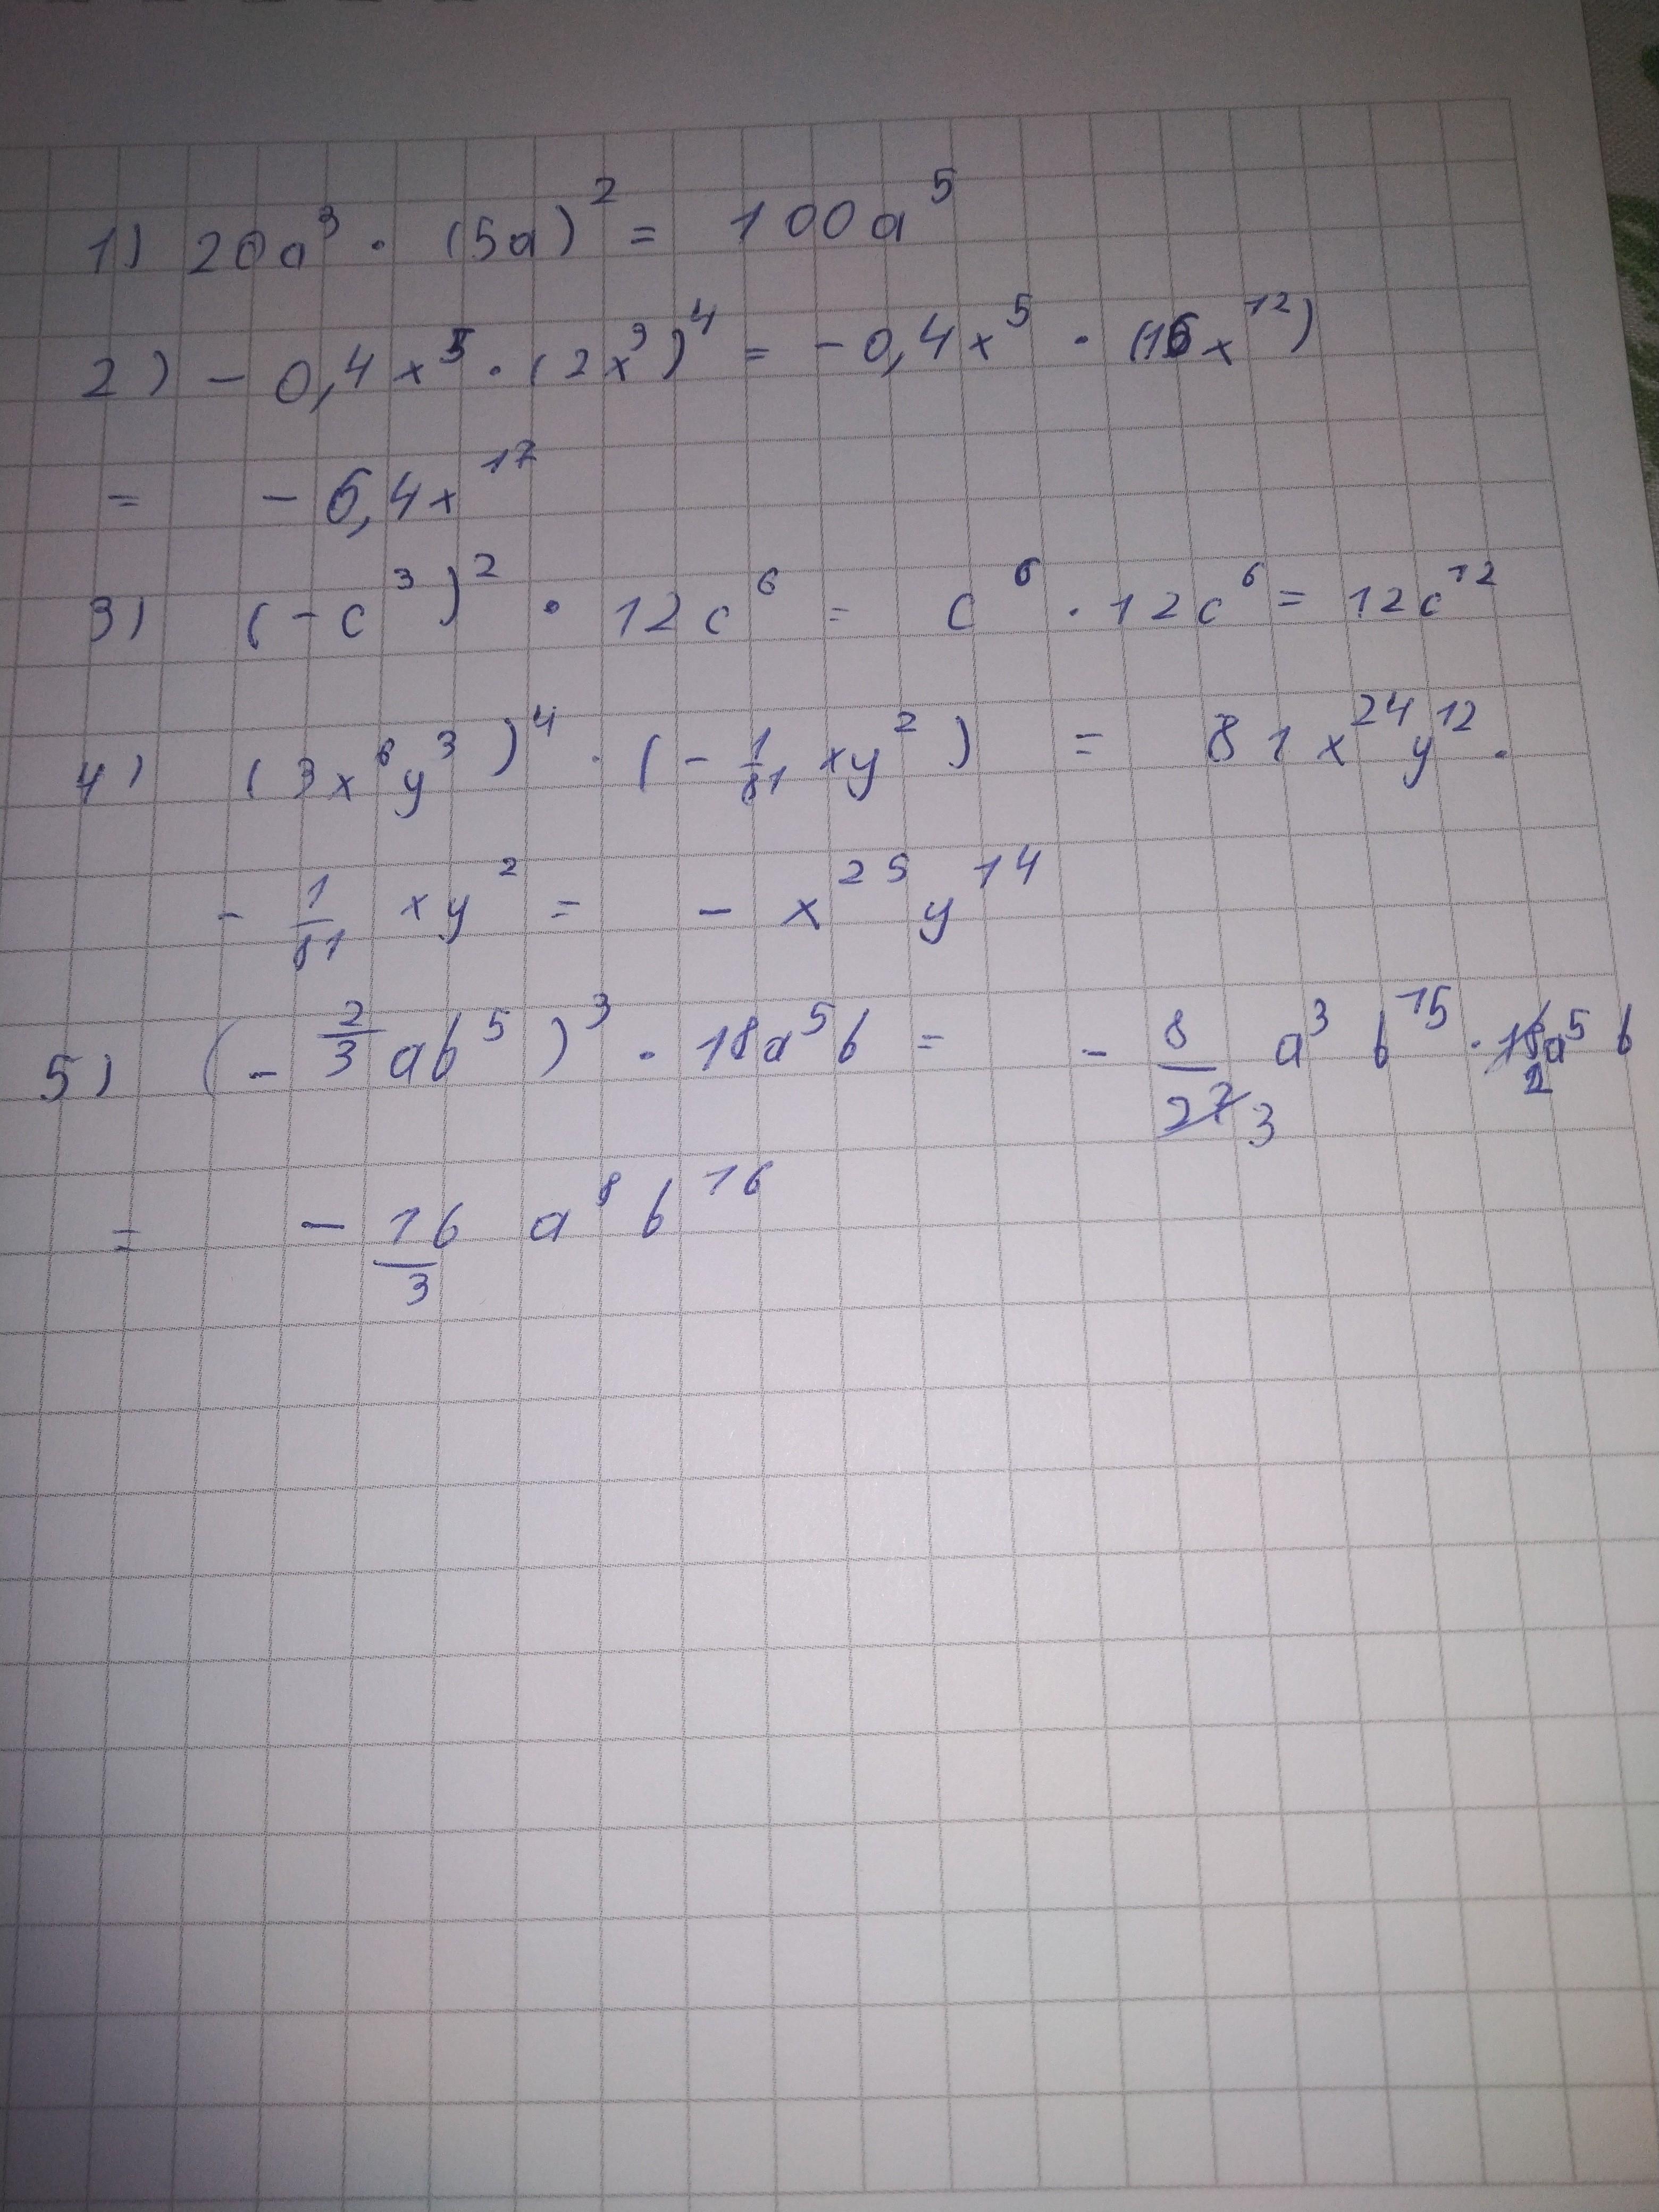 1) 20a³ · (5a)² = 100a⁵
2) - 0,4x⁵ · (2x³)⁴ = - 0,4x⁵ · (16x¹²)
= - 6,4x¹⁷
3) (-c³)² · 12c⁶ = c⁶ · 12c⁶ = 12c¹²
4) (3x⁶y³)⁴ · (- 1/81 xy²) = 81x²⁴y¹² ·
- 1/81 xy² = - x²⁵y¹⁴
5) (- 2/3 ab⁵)³ · 18a⁵b = - 8/27 3 a³ b¹⁵ · 18 2 a⁵b
= - 16/3 a⁸b¹⁶